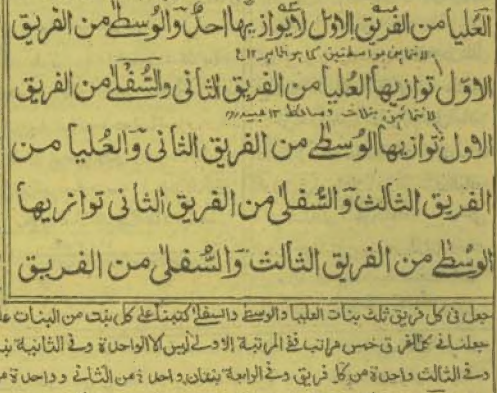 العُليا من الفريق الاول لا يوازيها احدٌ وَالوُسطےٰ من الفريق
الاوّل توازيها العُليا من الفريق الثانى والسُّفلےٰ من الفريق
الاول توازيها الوُسطےٰ من الفريق الثانى وَالعُليا من
الفريق الثالث وَالسُّفلىٰ من الفريق الثانى توازيها
الوسُطےٰ من الفريق الثالث وَالسُّفلىٰ من الفريق
جعل فى كل فريق ثلث بنات العليا والوسطے والسفلےٰ كتبنا على كل بنت من البنات
خمس مراتب ففے المرتبة الاولے ليس الا الواحدة وفے الثانية
وفے الثالث واحدة من كل فريق وفے الرابعة بنتان واحدة من الثانى وواحدة